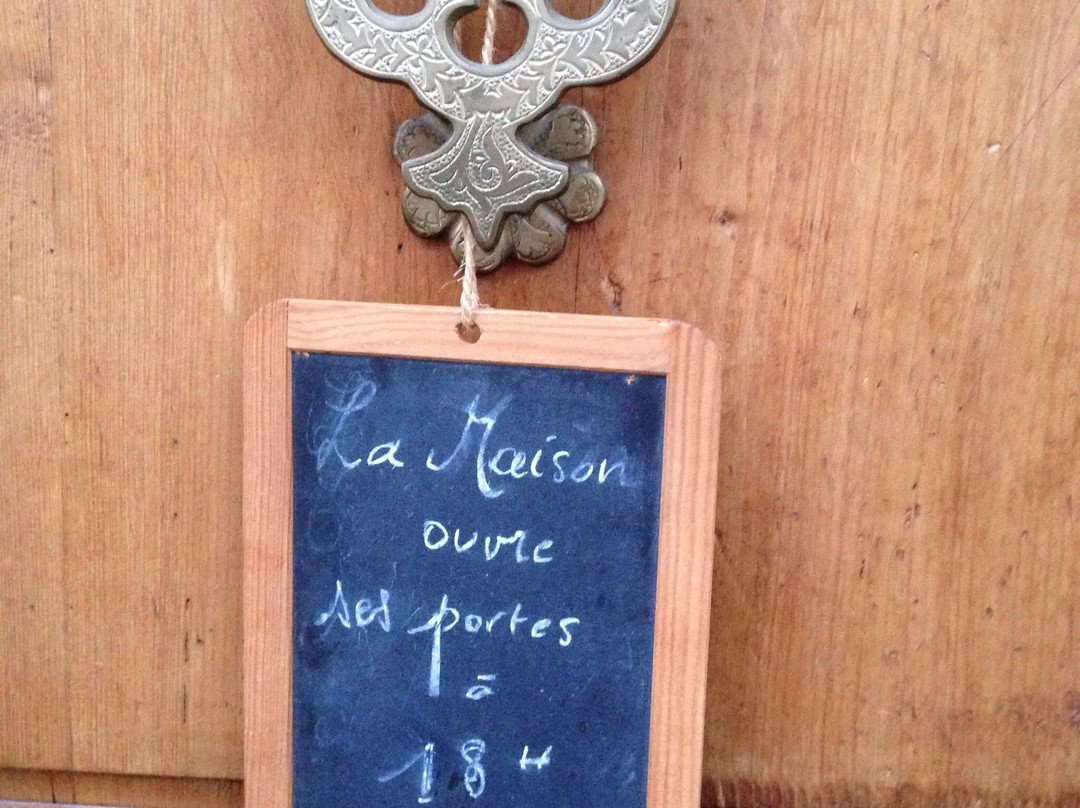 La Maison
ouvre
ses portes
à
18 H